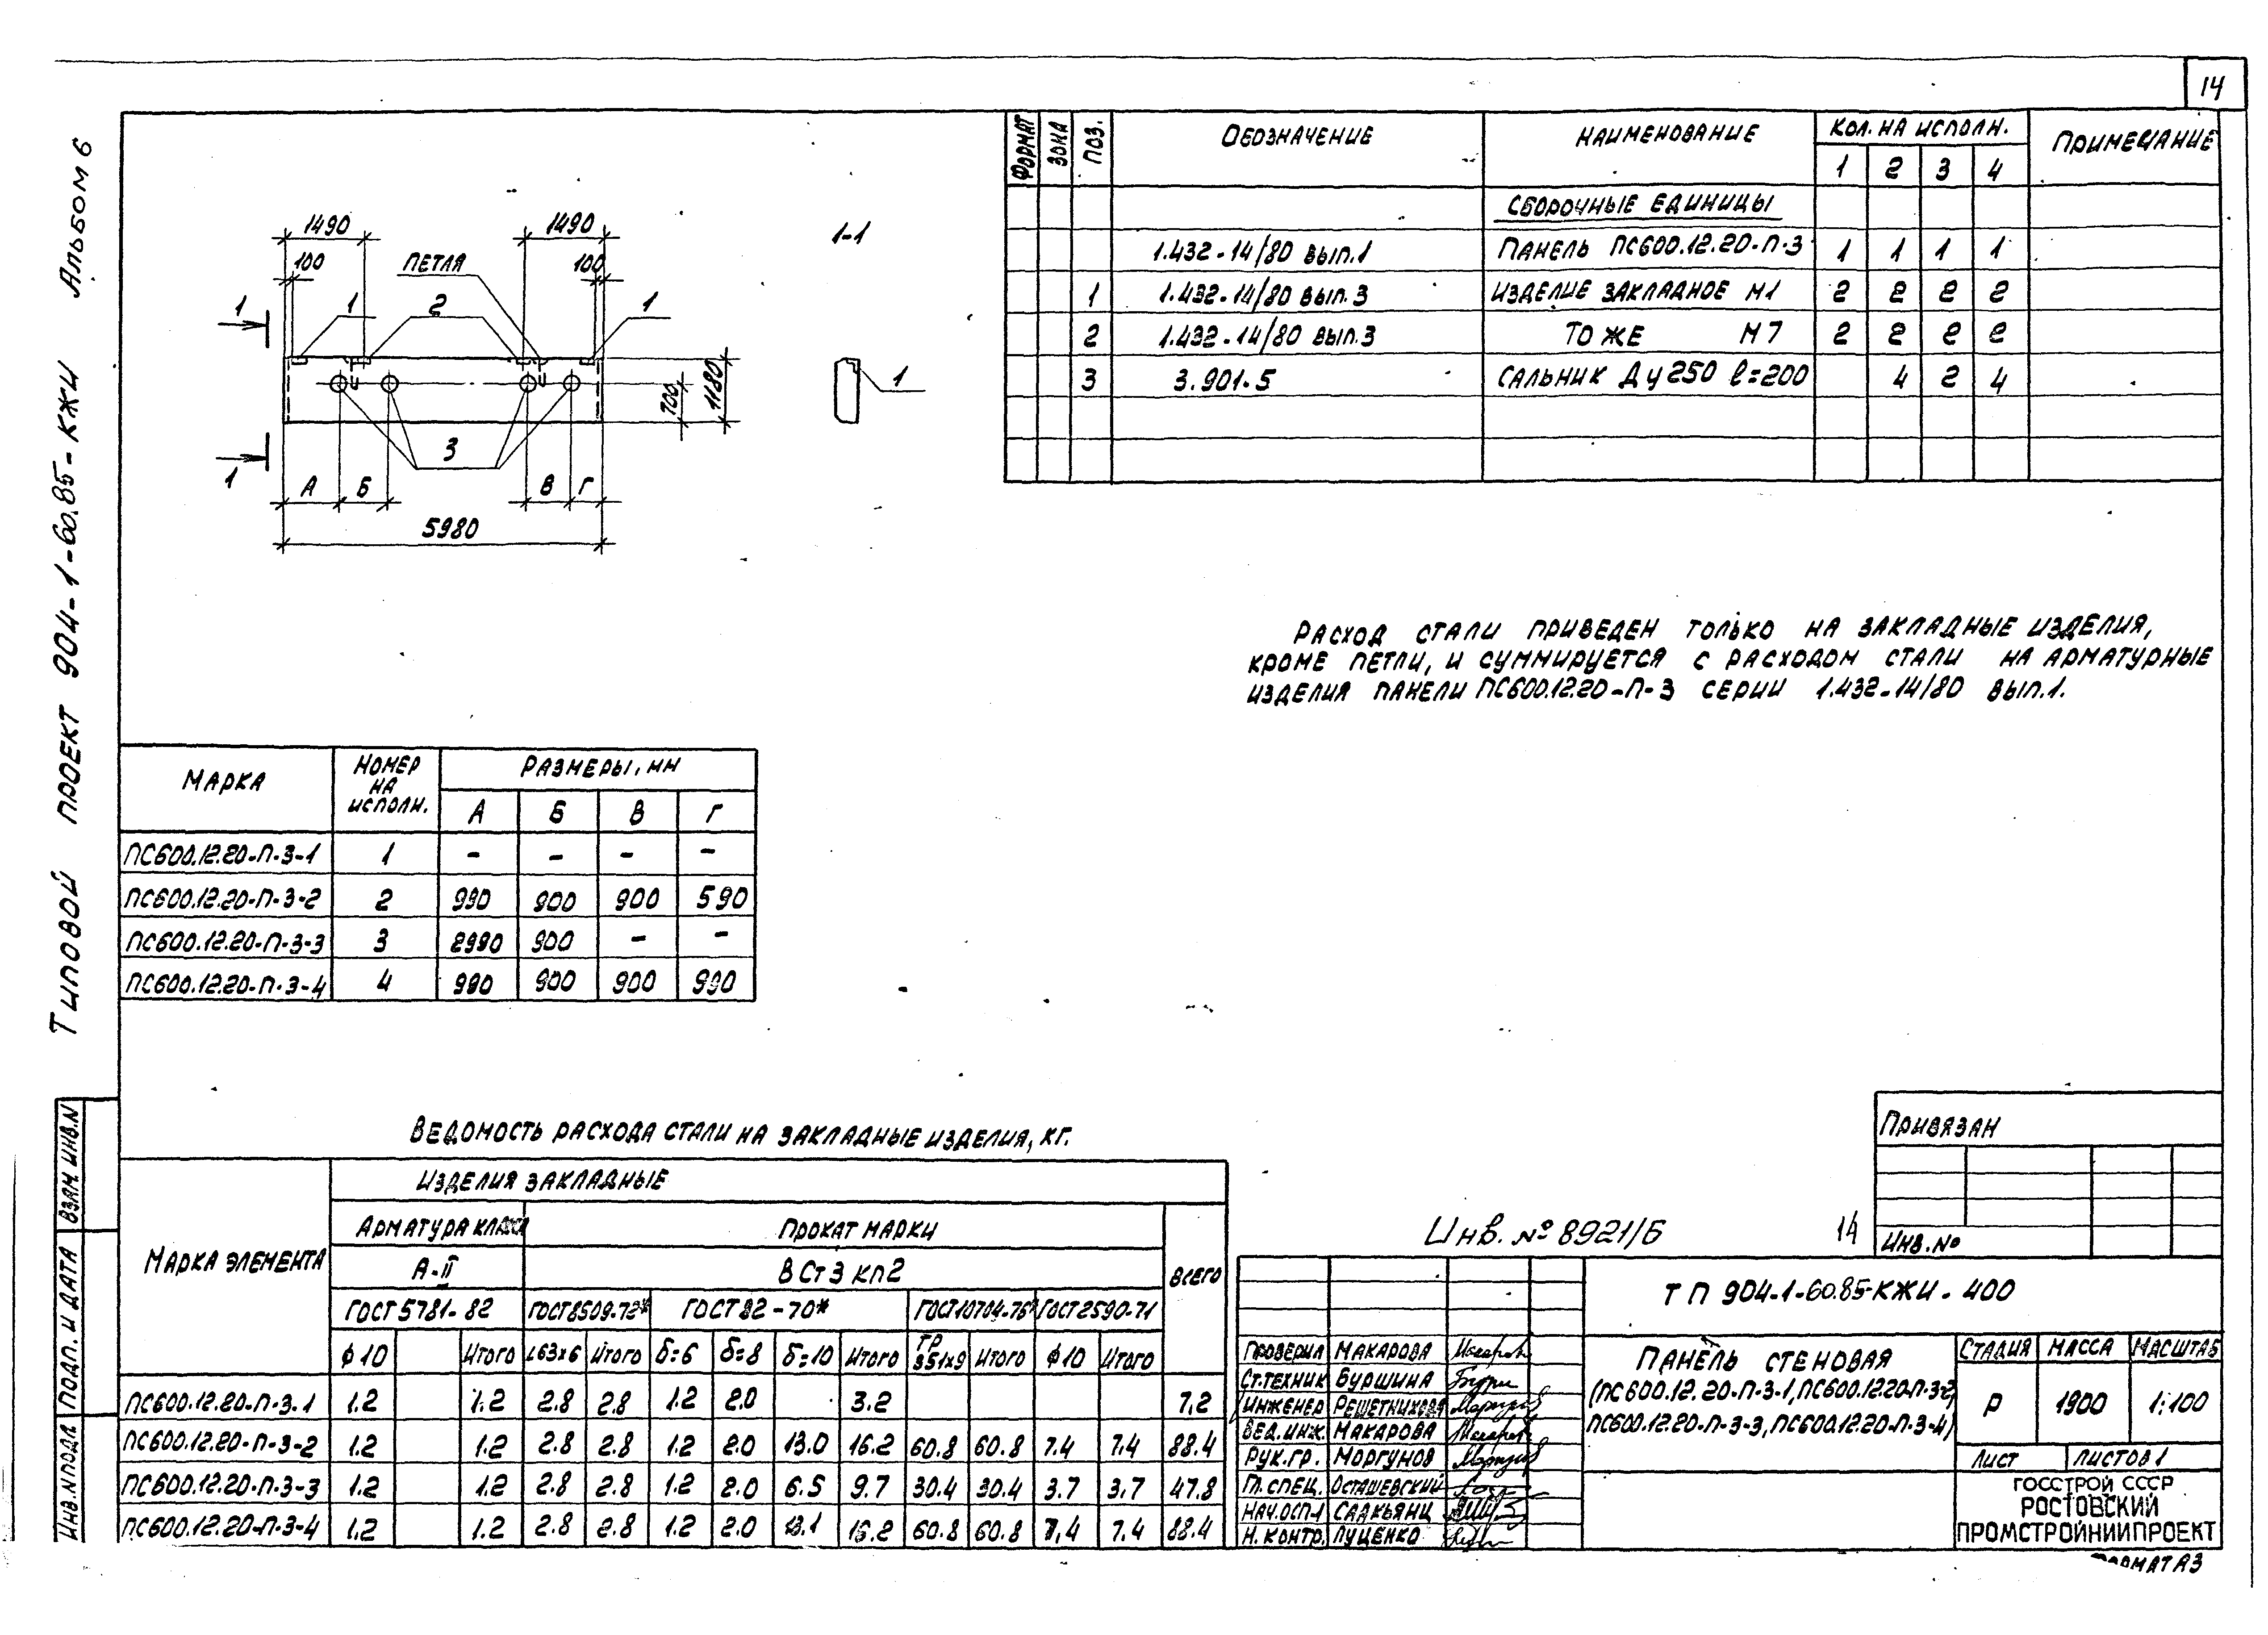 14
Типовой проект 904-1-60.85-КЖИ Альбом 6
1490 1490
100 ПЕТЛЯ 100
1 1 2 1
700 1180
3
1
А Б В Г
5980
1-1
1
ФОРМАТ ЗОНА ПОЗ. ОБОЗНАЧЕНИЕ НАИМЕНОВАНИЕ КОЛ. НА ИСПОЛН. ПРИМЕЧАНИЕ
1 2 3 4
СБОРОЧНЫЕ ЕДИНИЦЫ
1.432-14/80 вып.1 ПАНЕЛЬ ПС600.12.20-П-3 1 1 1 1
1 1.432-14/80 вып.3 ИЗДЕЛИЕ ЗАКЛАДНОЕ М1 2 2 2 2
2 1.432-14/80 вып.3 ТО ЖЕ М7 2 2 2 2
3 3.901.5 САЛЬНИК Ду250 ℓ=200 4 2 4
РАСХОД СТАЛИ ПРИВЕДЕН ТОЛЬКО НА ЗАКЛАДНЫЕ ИЗДЕЛИЯ,
КРОМЕ ПЕТЛИ, И СУММИРУЕТСЯ С РАСХОДОМ СТАЛИ НА АРМАТУРНЫЕ
ИЗДЕЛИЯ ПАНЕЛИ ПС600.12.20-П-3 СЕРИИ 1.432-14/80 ВЫП.1.
МАРКА НОМЕР НА ИСПОЛН. РАЗМЕРЫ, ММ
А Б В Г
ПС600.12.20-П-3-1 1 - - - -
ПС600.12.20-П-3-2 2 990 900 900 590
ПС600.12.20-П-3-3 3 2990 900 - -
ПС600.12.20-П-3-4 4 990 900 900 990
ВЕДОМОСТЬ РАСХОДА СТАЛИ НА ЗАКЛАДНЫЕ ИЗДЕЛИЯ, КГ.
МАРКА ЭЛЕМЕНТА ИЗДЕЛИЯ ЗАКЛАДНЫЕ
АРМАТУРА КЛАССА ПРОКАТ МАРКИ ВСЕГО
А-II ВСт3 кп2
ГОСТ 5781-82 ГОСТ8509-72* ГОСТ82-70* ГОСТ10704-76* ГОСТ2590-71
ф10 ИТОГО L63х6 ИТОГО δ=6 δ=8 δ=10 ИТОГО ТР 351х9 ИТОГО ф10 ИТОГО
ПС600.12.20-П-3.1 1.2 1.2 2.8 2.8 1.2 2.0 3.2 7.2
ПС600.12.20-П-3-2 1.2 1.2 2.8 2.8 1.2 2.0 13.0 16.2 60.8 60.8 7.4 7.4 88.4
ПС600.12.20-П-3-3 1.2 1.2 2.8 2.8 1.2 2.0 6.5 9.7 30.4 30.4 3.7 3.7 47.8
ПС600.12.20-П-3-4 1.2 1.2 2.8 2.8 1.2 2.0 13.1 16.2 60.8 60.8 7,4 7.4 88.4
ВЗАМ.ИНВ.N
ПОДП. И ДАТА
ИНВ.N ПОДЛ
ПРИВЯЗАН
ИНВ.№
Инв. № 8921/6 14
ТП 904-1-60.85-КЖИ-400
ПРОВЕРИЛ МАКАРОВА
СТ.ТЕХНИК БУРШИНА
ИНЖЕНЕР РЕШЕТНИКОВА
ВЕД.ИНЖ. МАКАРОВА
РУК.ГР. МОРГУНОВ
ГЛ.СПЕЦ. ОСТАШЕВСКИЙ
НАЧ.ОСП-1 СААКЬЯНЦ
Н.КОНТР. ЛУЦЕНКО
ПАНЕЛЬ СТЕНОВАЯ
(ПС600.12.20-П-3-1, ПС600.12.20-П-3-2
ПС600.12.20-П-3-3, ПС600.12.20-П-3-4)
СТАДИЯ МАССА МАСШТАБ
Р 1900 1:100
ЛИСТ ЛИСТОВ 1
ГОССТРОЙ СССР
РОСТОВСКИЙ
ПРОМСТРОЙНИИПРОЕКТ
ФОРМАТ А3